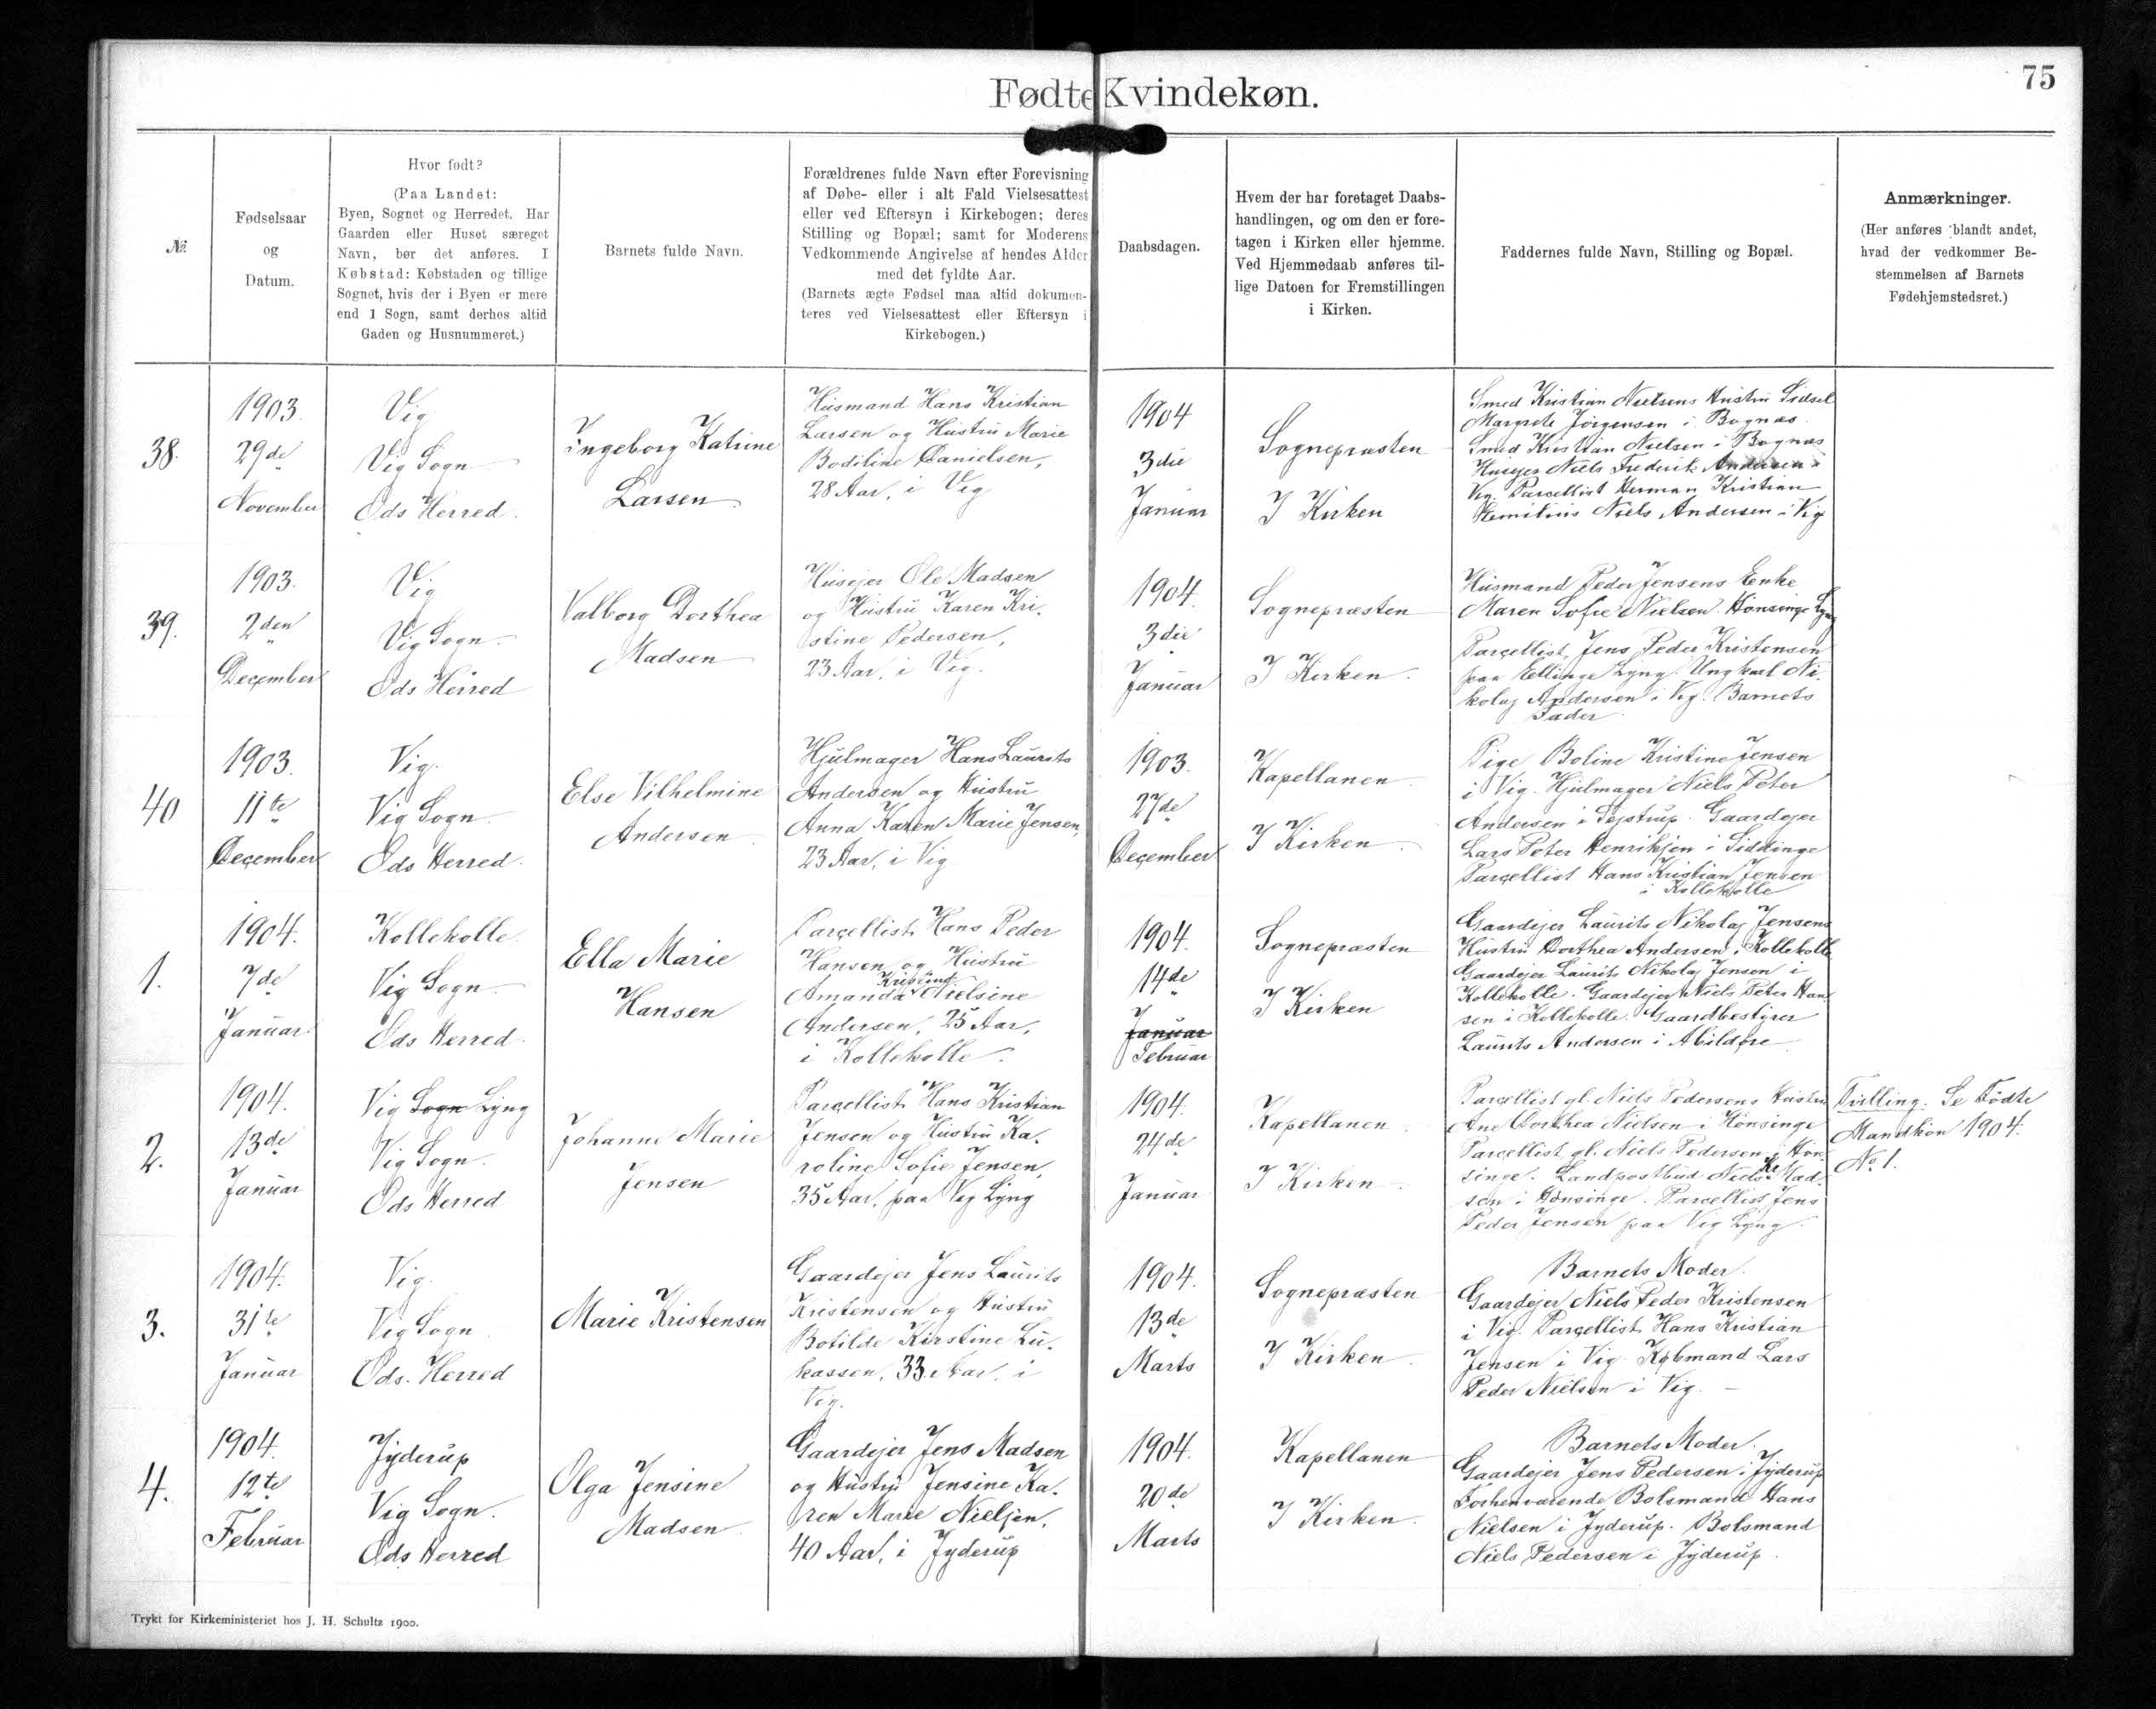 Fødte Kvindekøn.
75
№
Fødselsaar
og
Datum.
Hvor født?
(Paa Landet:
Byen, Sognet og Herredet. Har
Gaarden eller Huset særeget
Navn, bør det anføres. I
Købstad: Købstaden og tillige
Sognet, hvis der i Byen er mere
end 1 Sogn, samt derhos altid
Gaden og Husnummeret.)
Barnets fulde Navn.
Forældrenes fulde Navn efter Forevisning
af Døbe- eller i alt Fald Vielsesattest
eller ved Eftersyn i Kirkebogen; deres
Stilling og Bopæl; samt for Moderens
Vedkommende Angivelse af hendes Alder
med det fyldte Aar.
(Barnets ægte Fødsel maa altid dokumen-
teres ved Vielsesattest eller Eftersyn i
Kirkebogen.)
Daabsdagen.
Hvem der har foretaget Daabs-
handlingen, og om den er fore-
tagen i Kirken eller hjemme.
Ved Hjemmedaab anføres til-
lige Datoen for Fremstillingen
i Kirken.
Faddernes fulde Navn, Stilling og Bopæl.
Anmærkninger.
(Her anføres blandt andet,
hvad der vedkommer Be-
stemmelsen af Barnets
Fødehjemstedsret.)
38.
1903.
29de
November
Vig
Vig Sogn
Ods Herred.
Ingeborg Katrine
Larsen
Husmand Hans Kristian
Larsen og Hustru Marie
Bodiline Danielsen,
28 Aar, i Vig
1904
3die
Januar
Sognepræsten
I Kirken
Smed Kristian Nielsens Hustru Sidsel
Margrete Jørgensen i Bognæs.
Smed Kristian Nielsen i Bognæs
Husejer Niels Frederik Andersen i
Vig. Parcellist Herman Kristian
Niels Andersen i Vig
39.
1903.
2den
December
Vig
Vig Sogn.
Ods Herred
Valborg Dorthea
Madsen
Husejer Ole Madsen
og Hustru Karen Kri-
stine Pedersen,
23 Aar, i Vig.
1904.
3die
Januar
Sognepræsten
I Kirken.
Husmand Peder Jensens Enke
Maren Sofie Nielsen. Hønsinge Lyng
Parcellist Jens Peder Kristensen
paa Ellinge Lyng. Ungkarl Ni-
kolaj Andersen i Vig. Barnets
Fader.
40
1903.
11te
December
Vig.
Vig Sogn.
Ods Herred.
Else Vilhelmine
Andersen
Hjulmager Hans Laurits
Andersen og Hustru
Anna Karen Marie Jensen,
23 Aar, i Vig
1903.
27de
December
Kapellanen
I Kirken.
Pige Boline Kristine Jensen
i Vig. Hjulmager Niels Peter
Andersen i Sejstrup. Gaardejer
Lars Peter Henriksen i Siddinge
Parcellist Hans Kristian Jensen
i Kollekolle
1.
1904.
7de
Januar
Kollekolle.
Vig Sogn
Ods Herred.
Ella Marie
Hansen
Parcellist Hans Peder
Hansen og Hustru
Kristine
Amanda Nielsine
Andersen, 25 Aar,
i Kollekolle.
1904.
14de
Januar
Februar
Sognepræsten
I Kirken
Gaardejer Laurits Nikolaj Jensens
Hustru Dorthea Andersen, Kollekolle
Gaardejer Laurits Nikolaj Jensen i
Kollekolle. Gaardejer Niels Peter Han-
sen i Kollekolle. Gaardbestyrer
Laurits Andersen i Abildøre
2.
1904.
13de
Januar
Vig Sogn Lyng
Vig Sogn.
Ods Herred
Johanne Marie
Jensen
Parcellist Hans Kristian
Jensen og Hustru Ka-
roline Sofie Jensen,
35 Aar, paa Vig Lyng
1904.
24de
Januar
Kapellanen.
I Kirken
Parcellist gl. Niels Pedersens Hustru
Ane Dorthea Nielsen i Hønsinge
Parcellist gl. Niels Pedersen i Høn-
singe. Landpostbud Niels Kr. Mad-
sen i Hønsinge. Parcellist Jens
Peder Jensen paa Vig Lyng.
Tvilling. Se Fødte
Mandkøn 1904.
No 1.
3.
1904.
31te
Januar
Vig.
Vig Sogn
Ods. Herred
Marie Kristensen
Gaardejer Jens Laurits
Kristensen og Hustru
Botilde Kirstine Lu-
kassen, 33 Aar, i
Vig.
1904.
13de
Marts
Sognepræsten
I Kirken.
Barnets Moder.
Gaardejer Niels Peder Kristensen
i Vig. Parcellist Hans Kristian
Jensen i Vig. Købmand Lars
Peder Nielsen i Vig.
4.
1904.
12te
Februar
Jyderup
Vig Sogn.
Ods Herred
Olga Jensine
Madsen
Gaardejer Jens Madsen
og Hustru Jensine Ka-
ren Marie Nielsen,
40 Aar, i Jyderup
1904.
20de
Marts
Kapellanen
I Kirken.
Barnets Moder.
Gaardejer Jens Pedersen i Jyderup
Forhenværende Bolsmand Hans
Nielsen i Jyderup. Bolsmand
Niels Pedersen i Jyderup.
Trykt for Kirkeministeriet hos J. H. Schultz 1900.